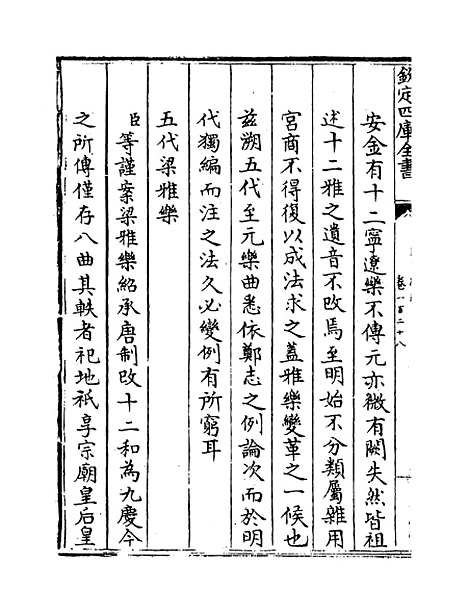 欽定四庫全書
卷一百二十八
安金有十二寧遼樂不傳元亦微有闕失然皆祖
述十二雅之遺音不改焉至明始不分類屬雜用
宮商不得復以成法求之蓋雅樂變革之一候也
茲溯五代至元樂曲悉依鄭志之例論次而於明
代獨編而注之法久必變例有所窮耳
五代梁雅樂
臣等謹案梁雅樂紹承唐制改十二和為九慶今
之所傳僅存八曲其軼者祀地祇享宗廟皇后皇